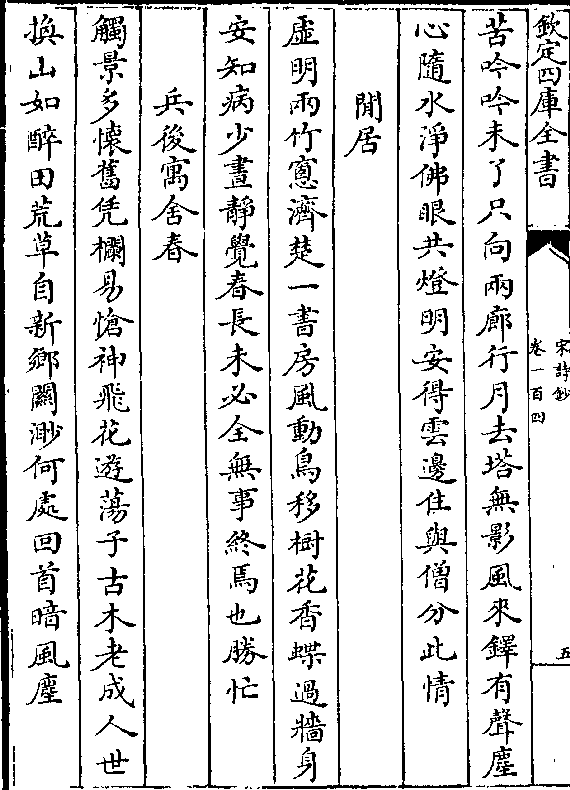 欽定四庫全書
宋詩鈔
卷一百四
五
苦吟吟未了只向兩廊行月去塔無影風來鐸有聲塵
心隨水淨佛眼共燈明安得雲邊住與僧分此情
閒居
虛明兩竹窻濟楚一書房風動鳥移樹花香蝶過牆身
安知病少晝靜覺春長未必全無事終焉也勝忙
兵後寓舍春
觸景多懷舊凭欄易愴神飛花遊蕩子古木老成人世
換山如醉田荒草自新鄉關渺何處回首暗風塵